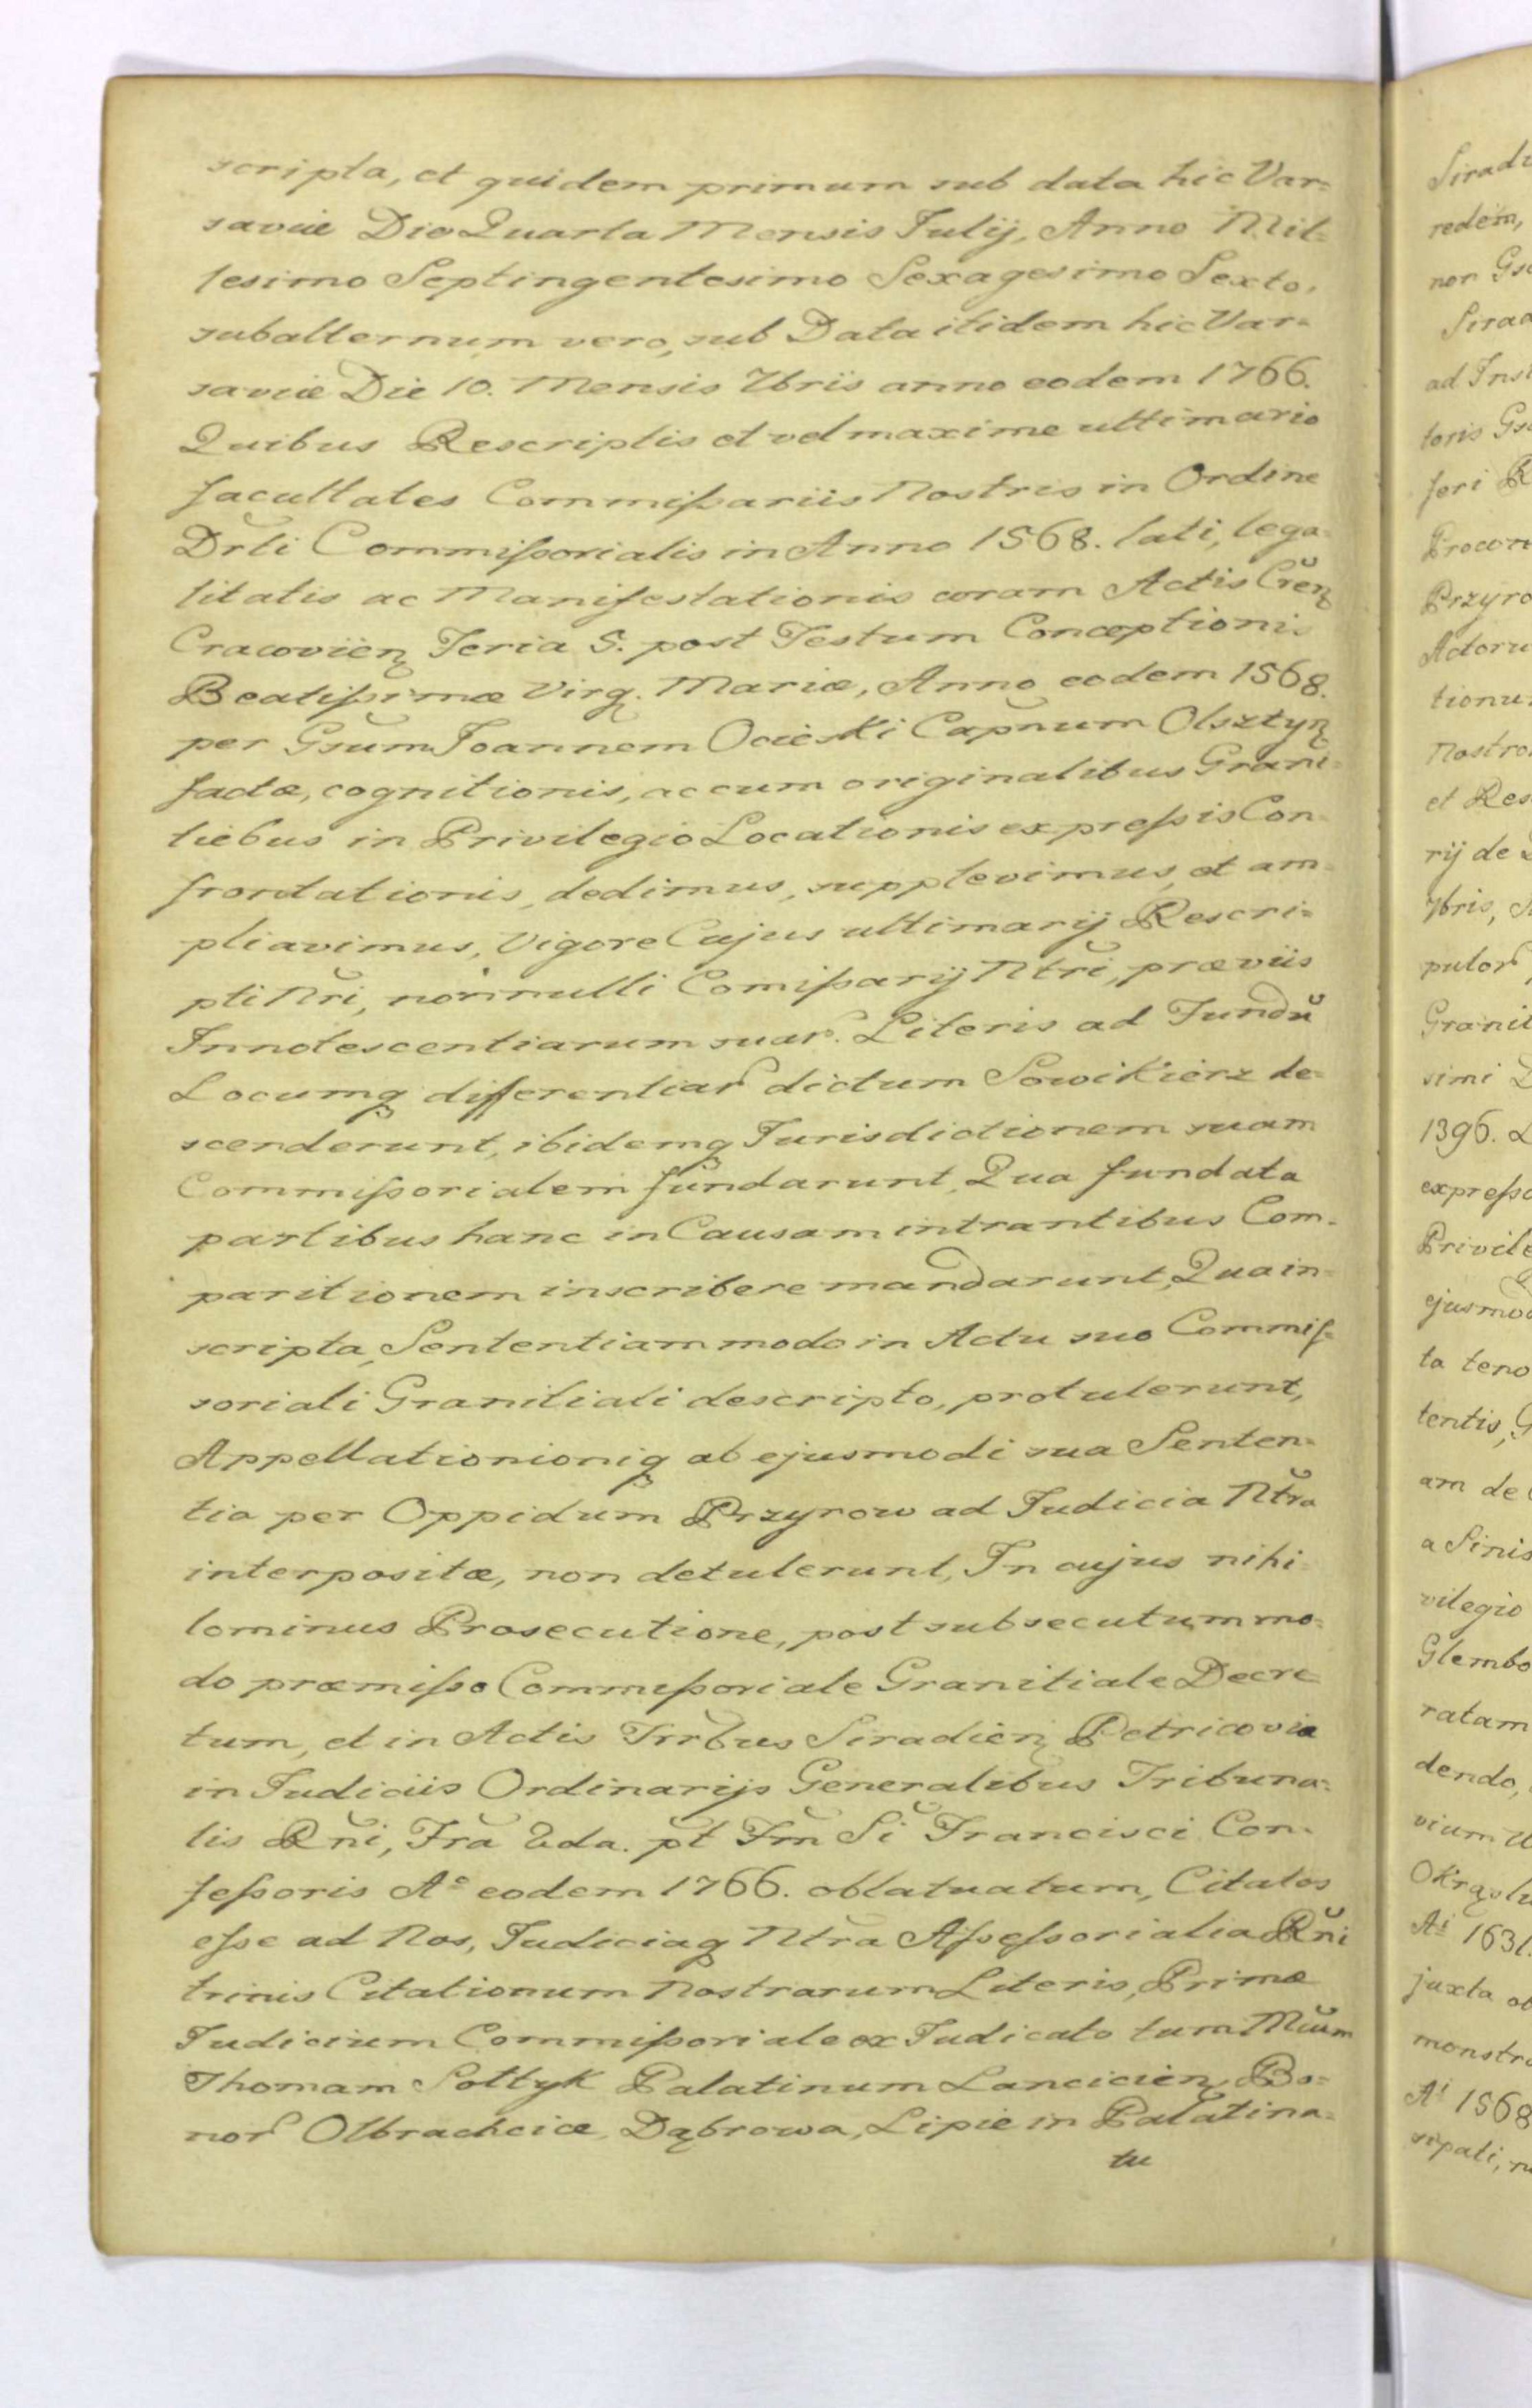 scripta, et quidem primum sub data hic Var=
saviæ Die Quarta Mensis Julij, Anno Mil=
lesimo Septingentesimo Sexagesimo Sexto,
subalternum vero, sub Data itidem hic Var=
saviæ Die 10. Mensis 7bris anno eodem 1766.
Quibus Rescriptis et vel maxime ultimario
facultates Commißariis Nostris in Ordine
Drti Commißorialis in Anno 1568. lati, lega=
litatis ac Manifestationis coram Actis
Cracovien Feria 5. post Festum Conceptionis
Beatißimæ Virg. Mariæ, Anno eodem 1568.
per Gsum Joannem Ocieski Capnum Olsztyn
factæ, cognitionis, ac cum originalibus Grani=
tiebus in Privilegio Locationis expreßis Con=
frontationis, dedimus, supplevimus, et am=
pliavimus, Vigore Cujus ultimarij Rescri=
pti Nri, nonnulli Comißarij Ntri, præviis
Innotescentiarum suar. Literis ad Fundŭ
Locumq differentiar dictum Sowikierz de=
scenderunt, ibidemq Jurisdictionem suam
Commißorialem fundarunt, Qua fundata
partibus hanc in Causam intrantibus Com=
paritionem inscribere mandarunt, Qua in=
scripta, Sententiam modo in Actu suo Commis=
soriali Granitiali descripto, protulerunt,
Appellationioniq ab ejusmodi sua Senten=
tia per Oppidum Przyrow ad Judicia Ntra
interpositæ, non detulerunt, In cujus nihi=
lominus Prosecutione, post subsecutum mo=
do præmißo Commißoriale Granitiale Decre=
tum, et in Actis Trrbus Siradien Petricoviæ
in Judiciis Ordinarijs Generalibus Tribuna=
lis Rni, Fra 2da. pt Fm Si Francisci Con=
feßoris Ao eodem 1766. oblatuatum, Citatos
eße ad Nos, Judiciaq Ntra Aßeßorialia Rni
trinis Citationum Nostrarum Literis, Primæ
Judicium Commißoriale ex Judicato tum Mŭum
Thomam Sołtyk Palatinum Lancicien, Bo=
nor Olbrachcice, Dąbrowa, Lipie in Palatina=
tu
Siradi
redem,
nor
Sirad
ad Inst
toris
feri R
Procon
Przyro
Actoru
tionu
Nostro
et Res
rij de
7bris,
putor
Granit
simi
1396.
expreßo
Privile
ejusmod
ta teno
tentis,
am de
a Sinis
vilegio
Glembo
ratam
dendo,
vium
Okrąsl
Ai 1631.
juxta ob
monstra
Ai 1568
sipati,